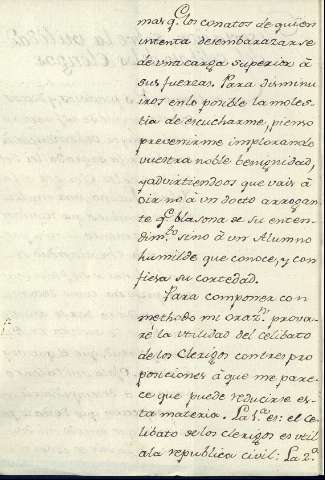 mas q.e los conatos de quien
intenta desembarazarse
de una carga superior à
sus fuerzas. Para disminu
iros en lo posible la moles-
tia de escucharme, pienso
prevenirme implorando
vuestra noble benignidad,
y advirtiendoos que vais à
oir no à un docto arrogan-
te q.e blasona de su enten-
dim.to sino à un Alumno
humilde que conoce, y con
fiesa su cortedad.
Para componer con
methodo mi oraz.n prova-
ré la utilidad del celibato
de los Clerigos con tres pro
posiciones à que me pare-
ce que puede reducirse es-
ta materia. La 1.a es: el ce-
libato de los clerigos es util
a la republica civil: La 2.a